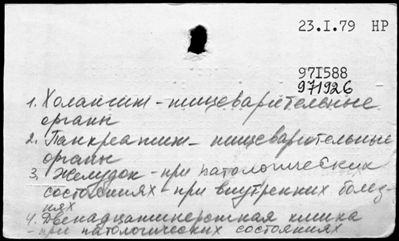 23.I.79 НР
97I588
971926
1. Холангит - пищеварительные
органы
2. Панкреатит - пищеварительные
органы
3. Желудок - при патологических
состояниях - при внутренних болез-
нях
4. Двенадцатиперстная кишка
- при патологических состояниях